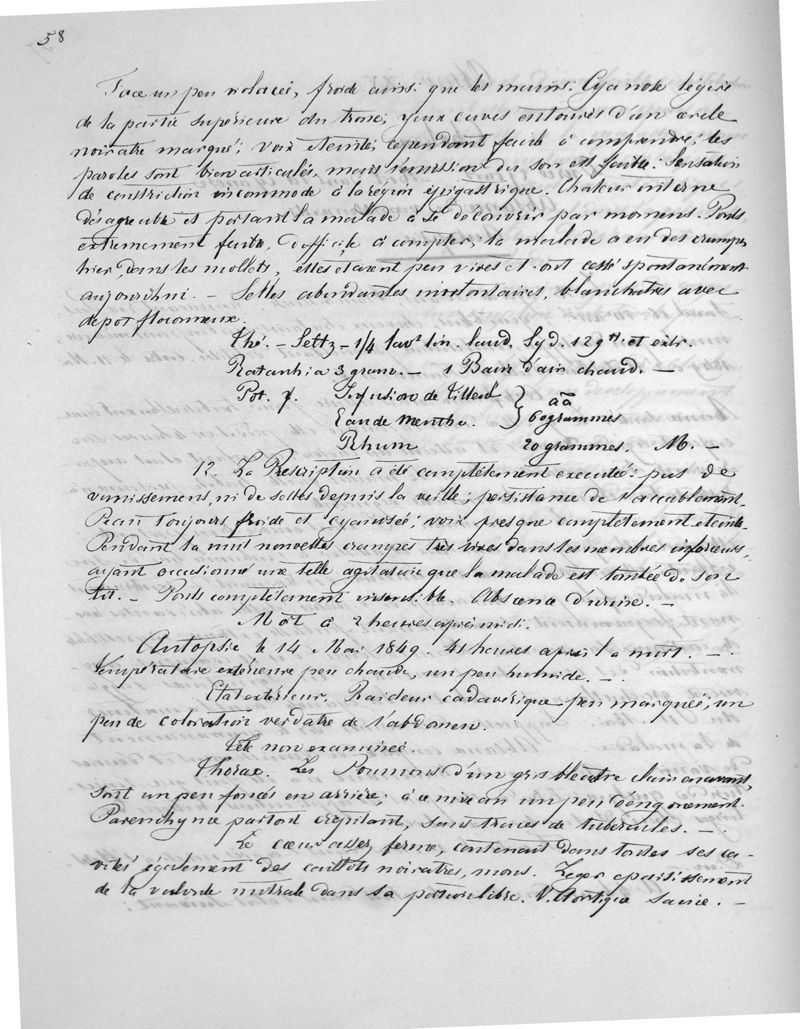 58
Face un peu violacée, froide ainsi que les mains. Cyanose légère
de la partie supérieure du tronc; yeux caves entourés d'un cercle
noiratre marqué; voix éteinte, cependant facile à comprendre; les
paroles sont bien articulées, mais l'émission du son est faible. Sensation
de constriction incommode à la région épigastrique. Chaleur interne
désagreable et portant la malade à se découvrir par momens. Pouls
extremement faible, difficile à compter; la malade a eu des crampes
hier, dans les mollets, elles étaient peu vives et ont cessé spontanément
aujourd'hui. — Selles abondantes involontaires, blanchatres avec
depot floconneux.
Thé. — Seltz — 1/4 lavt lin. laud. Syd. 12 gtt et extr.
Ratanhia 3 gram. — 1 Bain d'air chaud. —
Pot. p. Infusion de Tilleul } aa
Eau de Menthe. } 60 grammes
Rhum 20 grammes. M. —
12. La Prescription a été complètement executée: pas de
vomissemens, ni de selles depuis la veille; persistance de l'accablement.
Peau toujours froide et cyanosée; voix presque complètement éteinte.
Pendant la nuit nouvelles crampes très vives dans les membres inférieurs,
ayant occasionné une telle agitation que la malade est tombée de son
lit. — Pouls complètement insensible. Absence d'urine. —
Mort à 2 heures après midi.
Autopsie le 14 Mai 1849. 41 heures après la mort. —
Température extérieure peu chaude, un peu humide. —
Etat extérieur. Raideur cadavérique peu marquée; un
peu de coloration verdatre de l'abdomen.
Tête non examinée.
Thorax. Les Poumons d'un gris bleuatre clair en avant,
sont un peu foncés en arrière; à ce niveau un peu d'engouement.
Parenchyme partout crépitant, sans traces de tubercules. —
Le cœur assez ferme, contenant dans toutes ses ca-
vités également des caillots noiratres, mous. Leger epaississement
de la valvule mitrale dans sa portion libre. V. Aortique saine. —